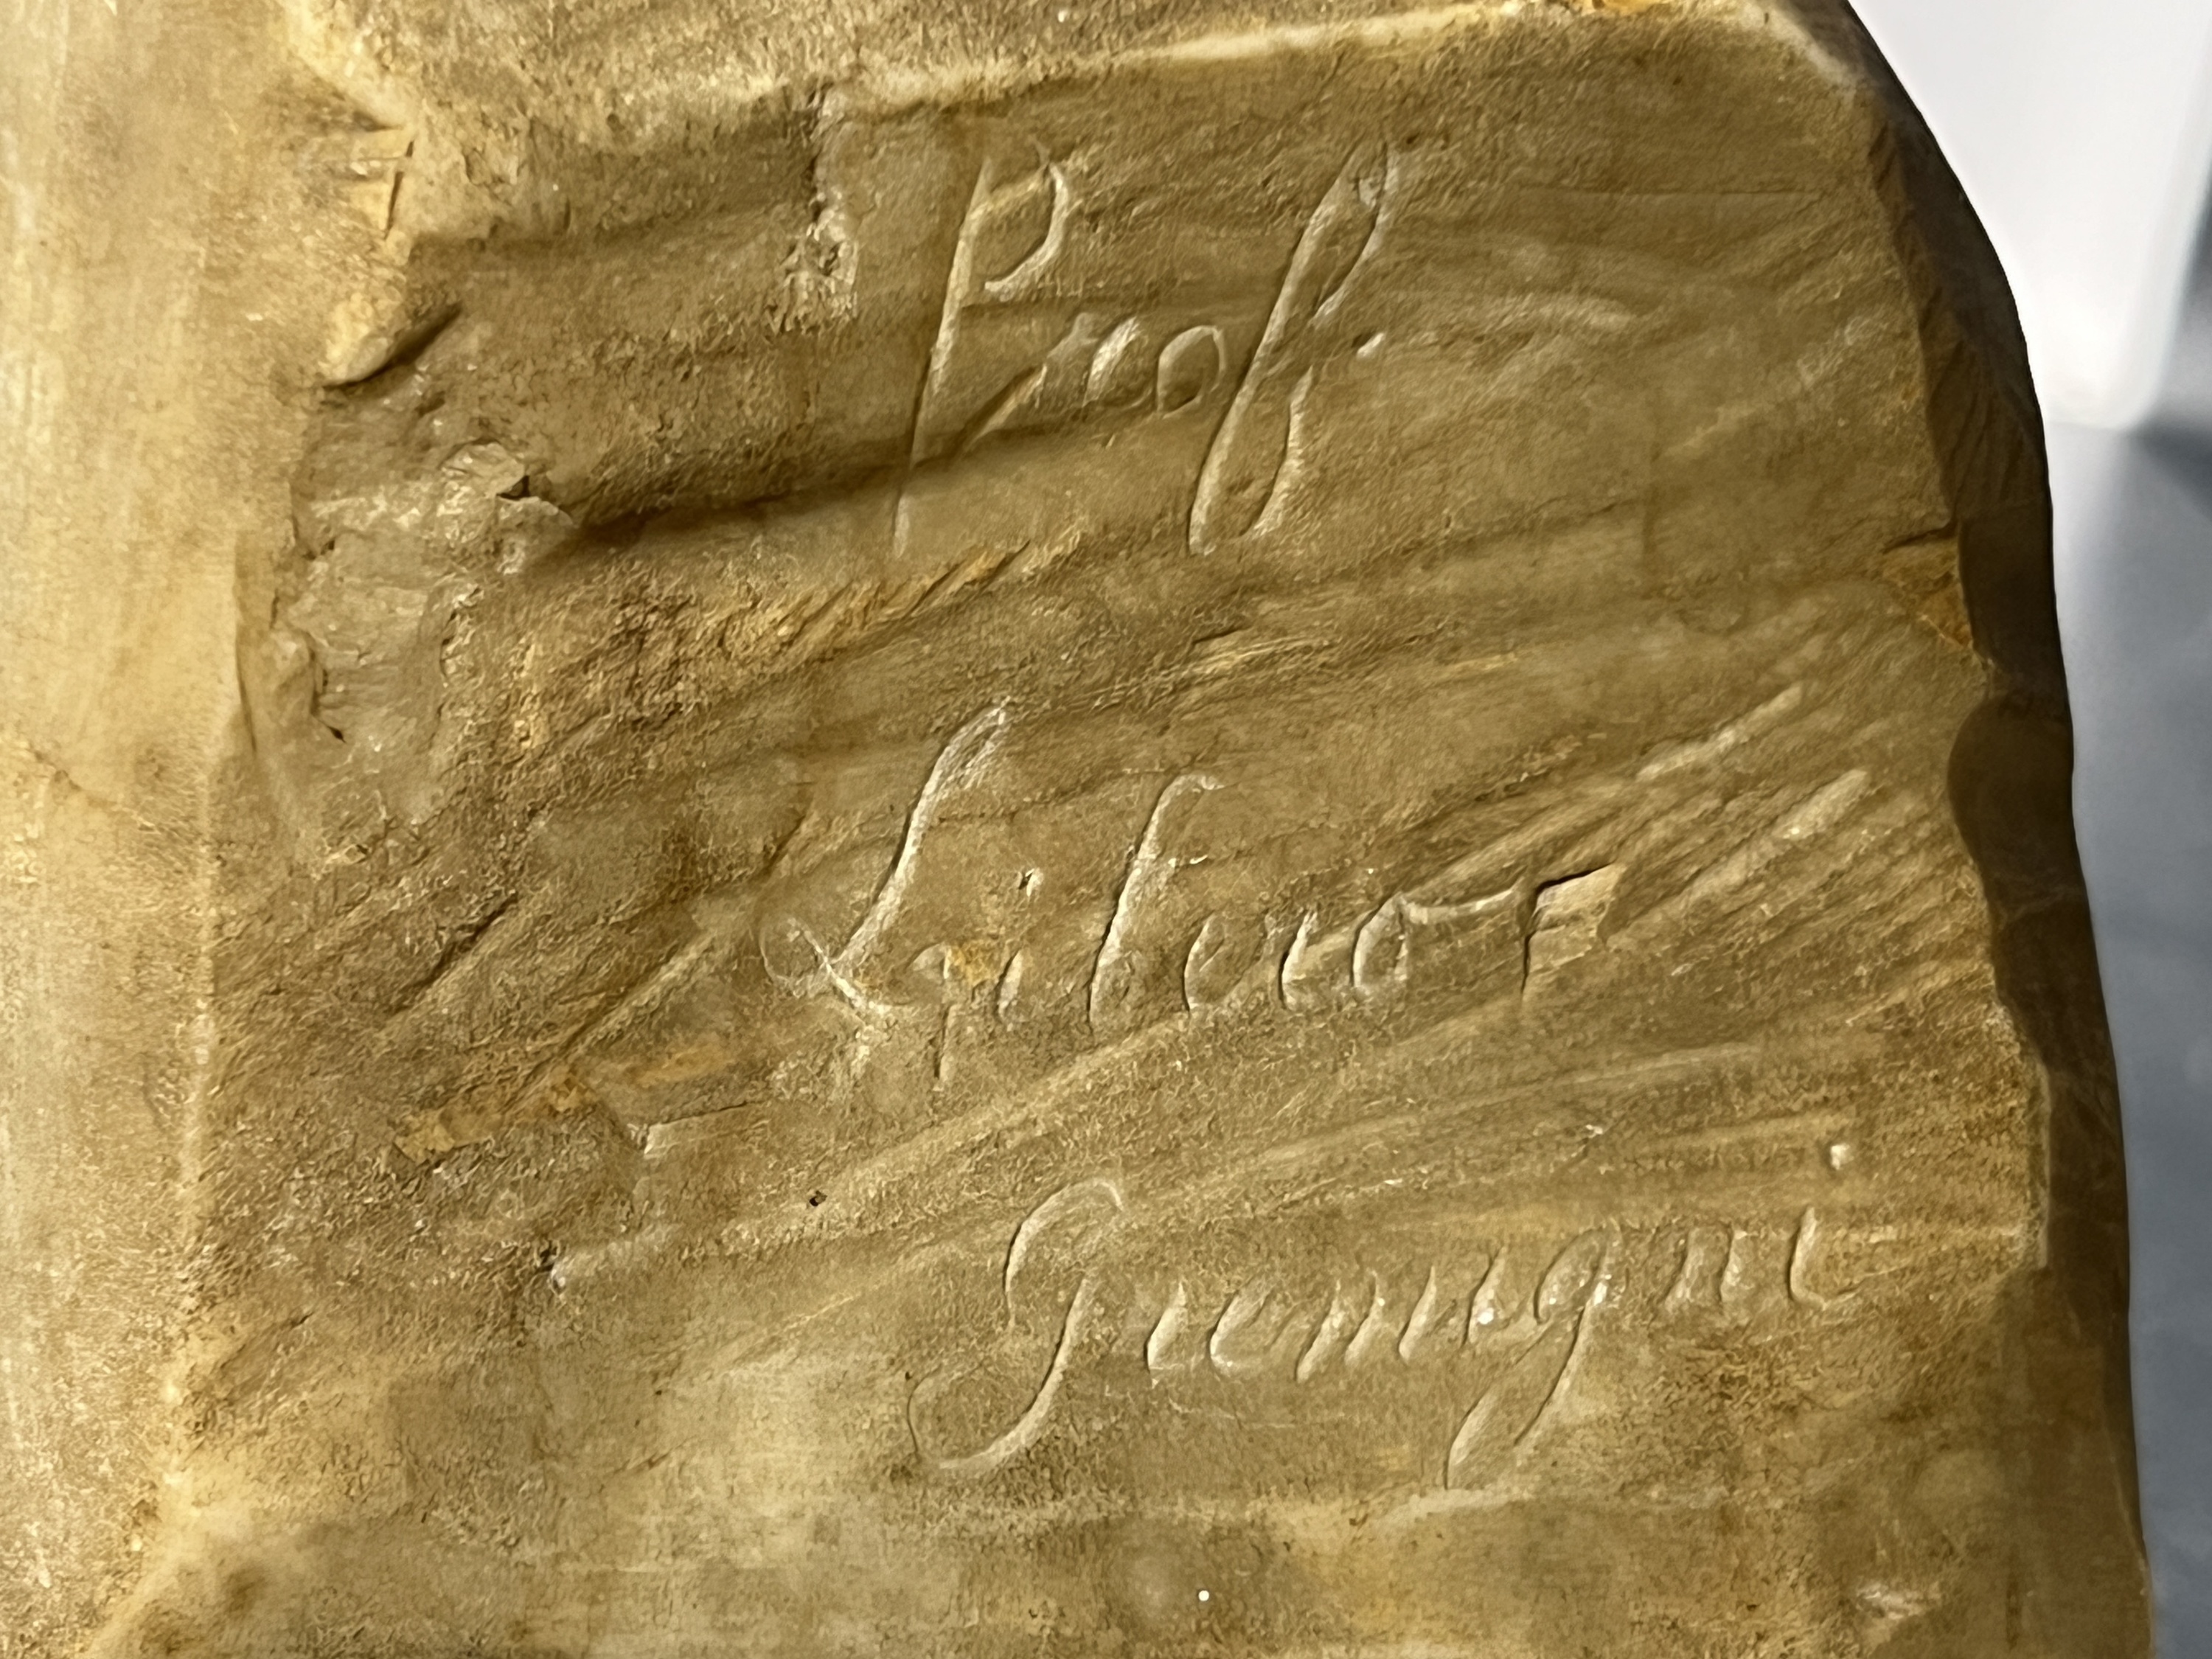 Prof.
Libero
Gremigni